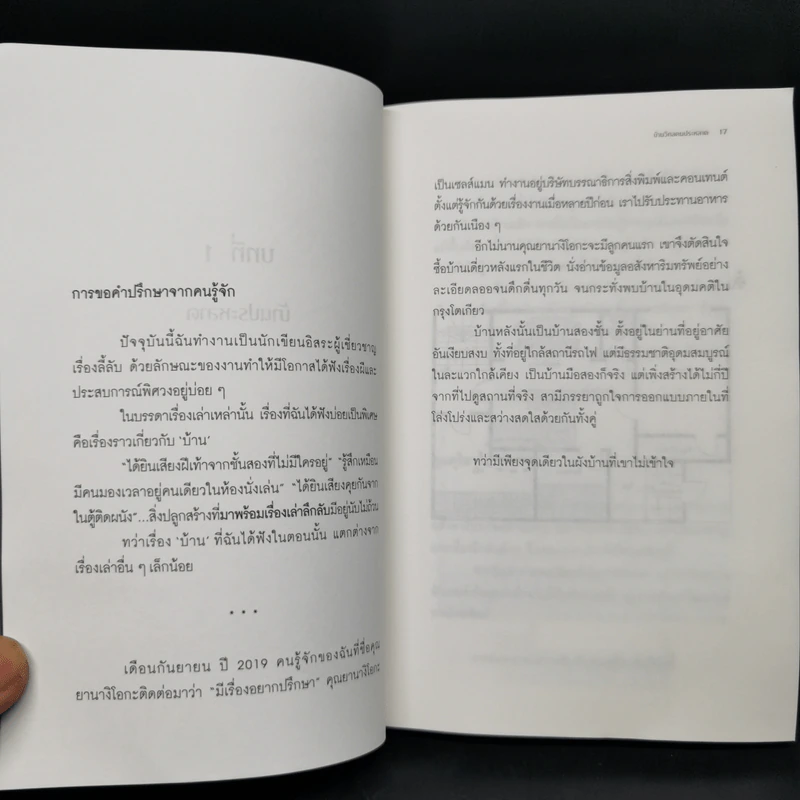 การขอคำปรึกษาจากคนรู้จัก
ปัจจุบันนี้ฉันทำงานเป็นนักเขียนอิสระผู้เชี่ยวชาญ
เรื่องลี้ลับ ด้วยลักษณะของงานทำให้มีโอกาสได้ฟังเรื่องผีและ
ประสบการณ์พิศวงอยู่บ่อย ๆ
ในบรรดาเรื่องเล่าเหล่านั้น เรื่องที่ฉันได้ฟังบ่อยเป็นพิเศษ
คือเรื่องราวเกี่ยวกับ ‘บ้าน’
“ได้ยินเสียงฝีเท้าจากชั้นสองที่ไม่มีใครอยู่” “รู้สึกเหมือน
มีคนมองเวลาอยู่คนเดียวในห้องนั่งเล่น” “ได้ยินเสียงคุยกันจาก
ในตู้ติดผนัง”...สิ่งปลูกสร้างที่มาพร้อมเรื่องเล่าลึกลับมีอยู่นับไม่ถ้วน
ทว่าเรื่อง ‘บ้าน’ ที่ฉันได้ฟังในตอนนั้น แตกต่างจาก
เรื่องเล่าอื่น ๆ เล็กน้อย
* * *
เดือนกันยายน ปี 2019 คนรู้จักของฉันที่ชื่อคุณ
ยานางิโอกะติดต่อมาว่า “มีเรื่องอยากปรึกษา” คุณยานางิโอกะ
บ้านวิกลคนประหลาด 17
เป็นเซลส์แมน ทำงานอยู่บริษัทบรรณาธิการสิ่งพิมพ์และคอนเทนต์
ตั้งแต่รู้จักกันด้วยเรื่องงานเมื่อหลายปีก่อน เราไปรับประทานอาหาร
ด้วยกันเนือง ๆ
อีกไม่นานคุณยานางิโอกะจะมีลูกคนแรก เขาจึงตัดสินใจ
ซื้อบ้านเดี่ยวหลังแรกในชีวิต นั่งอ่านข้อมูลอสังหาริมทรัพย์อย่าง
ละเอียดลออจนดึกดื่นทุกวัน จนกระทั่งพบบ้านในอุดมคติใน
กรุงโตเกียว
บ้านหลังนั้นเป็นบ้านสองชั้น ตั้งอยู่ในย่านที่อยู่อาศัย
อันเงียบสงบ ทั้งที่อยู่ใกล้สถานีรถไฟ แต่มีธรรมชาติอุดมสมบูรณ์
ในละแวกใกล้เคียง เป็นบ้านมือสองก็จริง แต่เพิ่งสร้างได้ไม่กี่ปี
จากที่ไปดูสถานที่จริง สามีภรรยาถูกใจการออกแบบภายในที่
โล่งโปร่งและสว่างสดใสด้วยกันทั้งคู่
ทว่ามีเพียงจุดเดียวในผังบ้านที่เขาไม่เข้าใจ